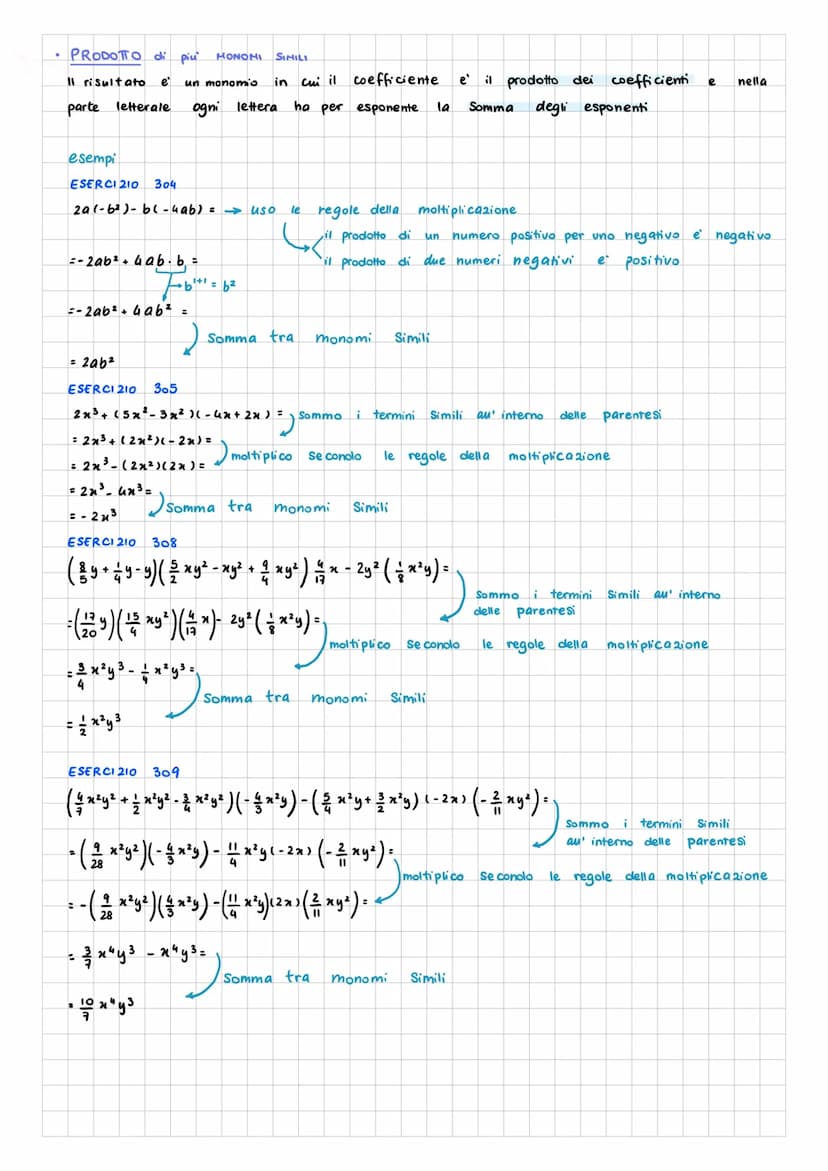 • PRODOTTO di piu' MONOMI SIMILI
Il risultato e' un monomio in cui il coefficiente e' il prodotto dei coefficienti e nella
parte letterale ogni lettera ha per esponente la somma degli esponenti
esempi
ESERCIZIO 304
2a(-b²)-b(-4ab) = → uso le regole della moltiplicazione
il prodotto di un numero positivo per uno negativo e' negativo
il prodotto di due numeri negativi e' positivo
=-2ab² + 4ab·b =
→b¹⁺¹ = b²
=-2ab² + 4ab² =
Somma tra monomi Simili
= 2ab²
ESERCIZIO 305
2x³+(5x²-3x²)(-4x+2x) = Sommo i termini Simili all'interno delle parentesi
= 2x³+(2x²)(-2x)=
moltiplico Secondo le regole della moltiplicazione
= 2x³-(2x²)(2x)=
= 2x³-4x³=
Somma tra monomi Simili
= -2x³
ESERCIZIO 308
(8/5 y + 1/4 y - y)(5/2 xy² - xy² + 9/4 xy²) 4/17 x - 2y² (1/8 x²y) =
Sommo i termini Simili all'interno
delle parentesi
=(17/20 y)(15/4 xy²)(4/17 x)- 2y²(1/8 x²y)=
moltiplico Secondo le regole della moltiplicazione
= 3/4 x²y³ - 1/4 x²y³ =
Somma tra monomi Simili
= 1/2 x²y³
ESERCIZIO 309
(4/7 x²y² + 1/2 x²y² - 3/4 x²y²)(-4/3 x²y)-(5/4 x²y + 3/2 x²y)(-2x)(-2/11 xy²)=
Sommo i termini Simili
all'interno delle parentesi
=(9/28 x²y²)(-4/3 x²y)- 11/4 x²y(-2x)(-2/11 xy²)=
moltiplico Secondo le regole della moltiplicazione
= -(9/28 x²y²)(4/3 x²y)-(11/4 x²y)(2x)(2/11 xy²)=
= 3/7 x⁴y³ - x⁴y³=
Somma tra monomi Simili
= 10/7 x⁴y³